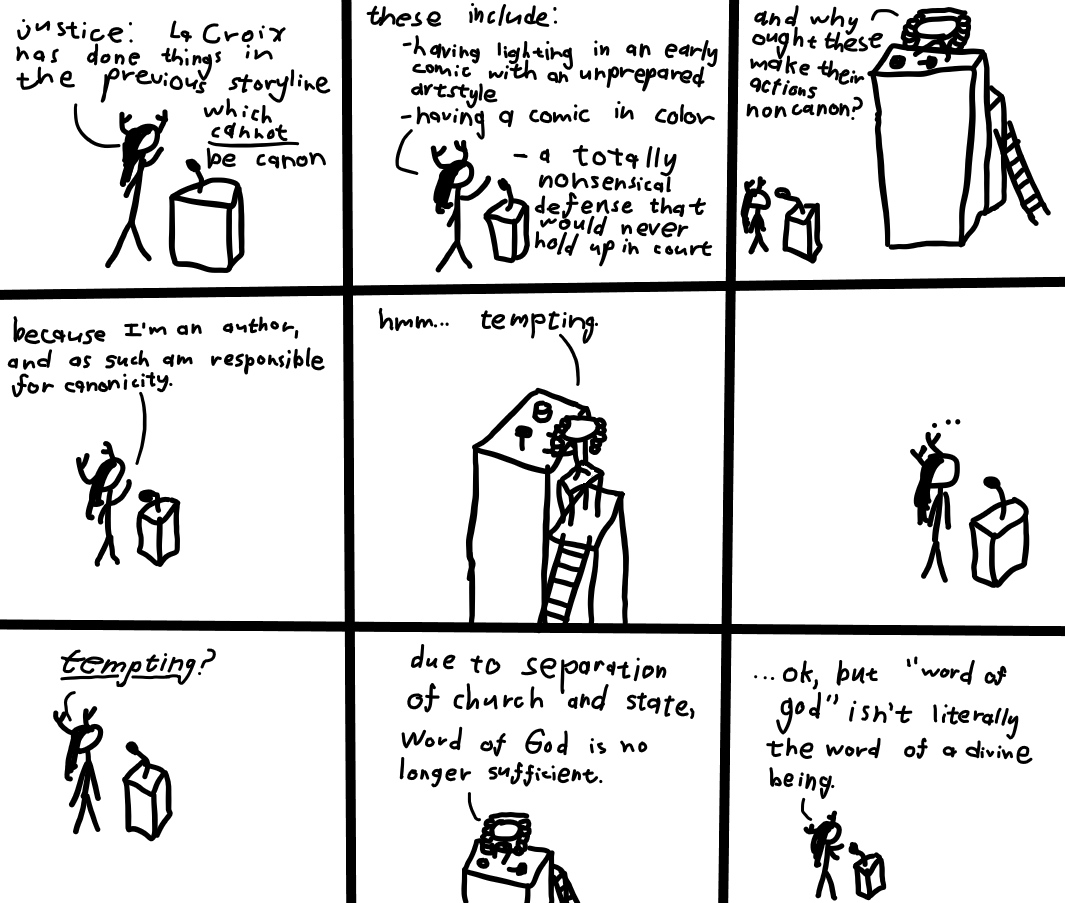 justice: La Croix
has done things in
the previous storyline
which
cannot
be canon
these include:
-having lighting in an early
comic with an unprepared
artstyle
-having a comic in color
- a totally
nonsensical
defense that
would never
hold up in court
and why
ought these
make their
actions
noncanon?
because I'm an author,
and as such am responsible
for canonicity.
hmm... tempting.
...
tempting?
due to separation
of church and state,
Word of God is no
longer sufficient.
...ok, but "word of
god" isn't literally
the word of a divine
being.